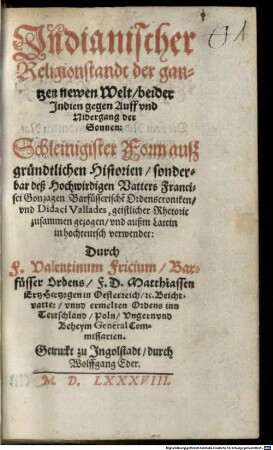 Indianischer
Religionstandt der gan-
tzen newen Welt/beider
Indien gegen Auff vnd
Nidergang der
Sonnen:
Schleinigister Form auß
gründtlichen Historien/sonder-
bar deß Hochwirdigen Vatters Franci-
sci Gonzagen Barfüsserische Ordenscroniken/
vnd Didaci Vallades, geistlicher Rhetoric
zusammen gezogen/vnd außm Latein
in hochteutsch verwendet:
Durch
F. Valentinum Fricium/Bar-
füsser Ordens/F. D. Matthiassen
Ertz Hertzogen in Oesterreich/ꝛc. Beicht-
vatter/vnnd ermelten Ordens inn
Teutschland/Poln/Vngern vnd
Beheym General Com-
missarien.
Getruckt zu Ingolstadt/durch
Wolffgang Eder.
M. D. LXXXVIII.